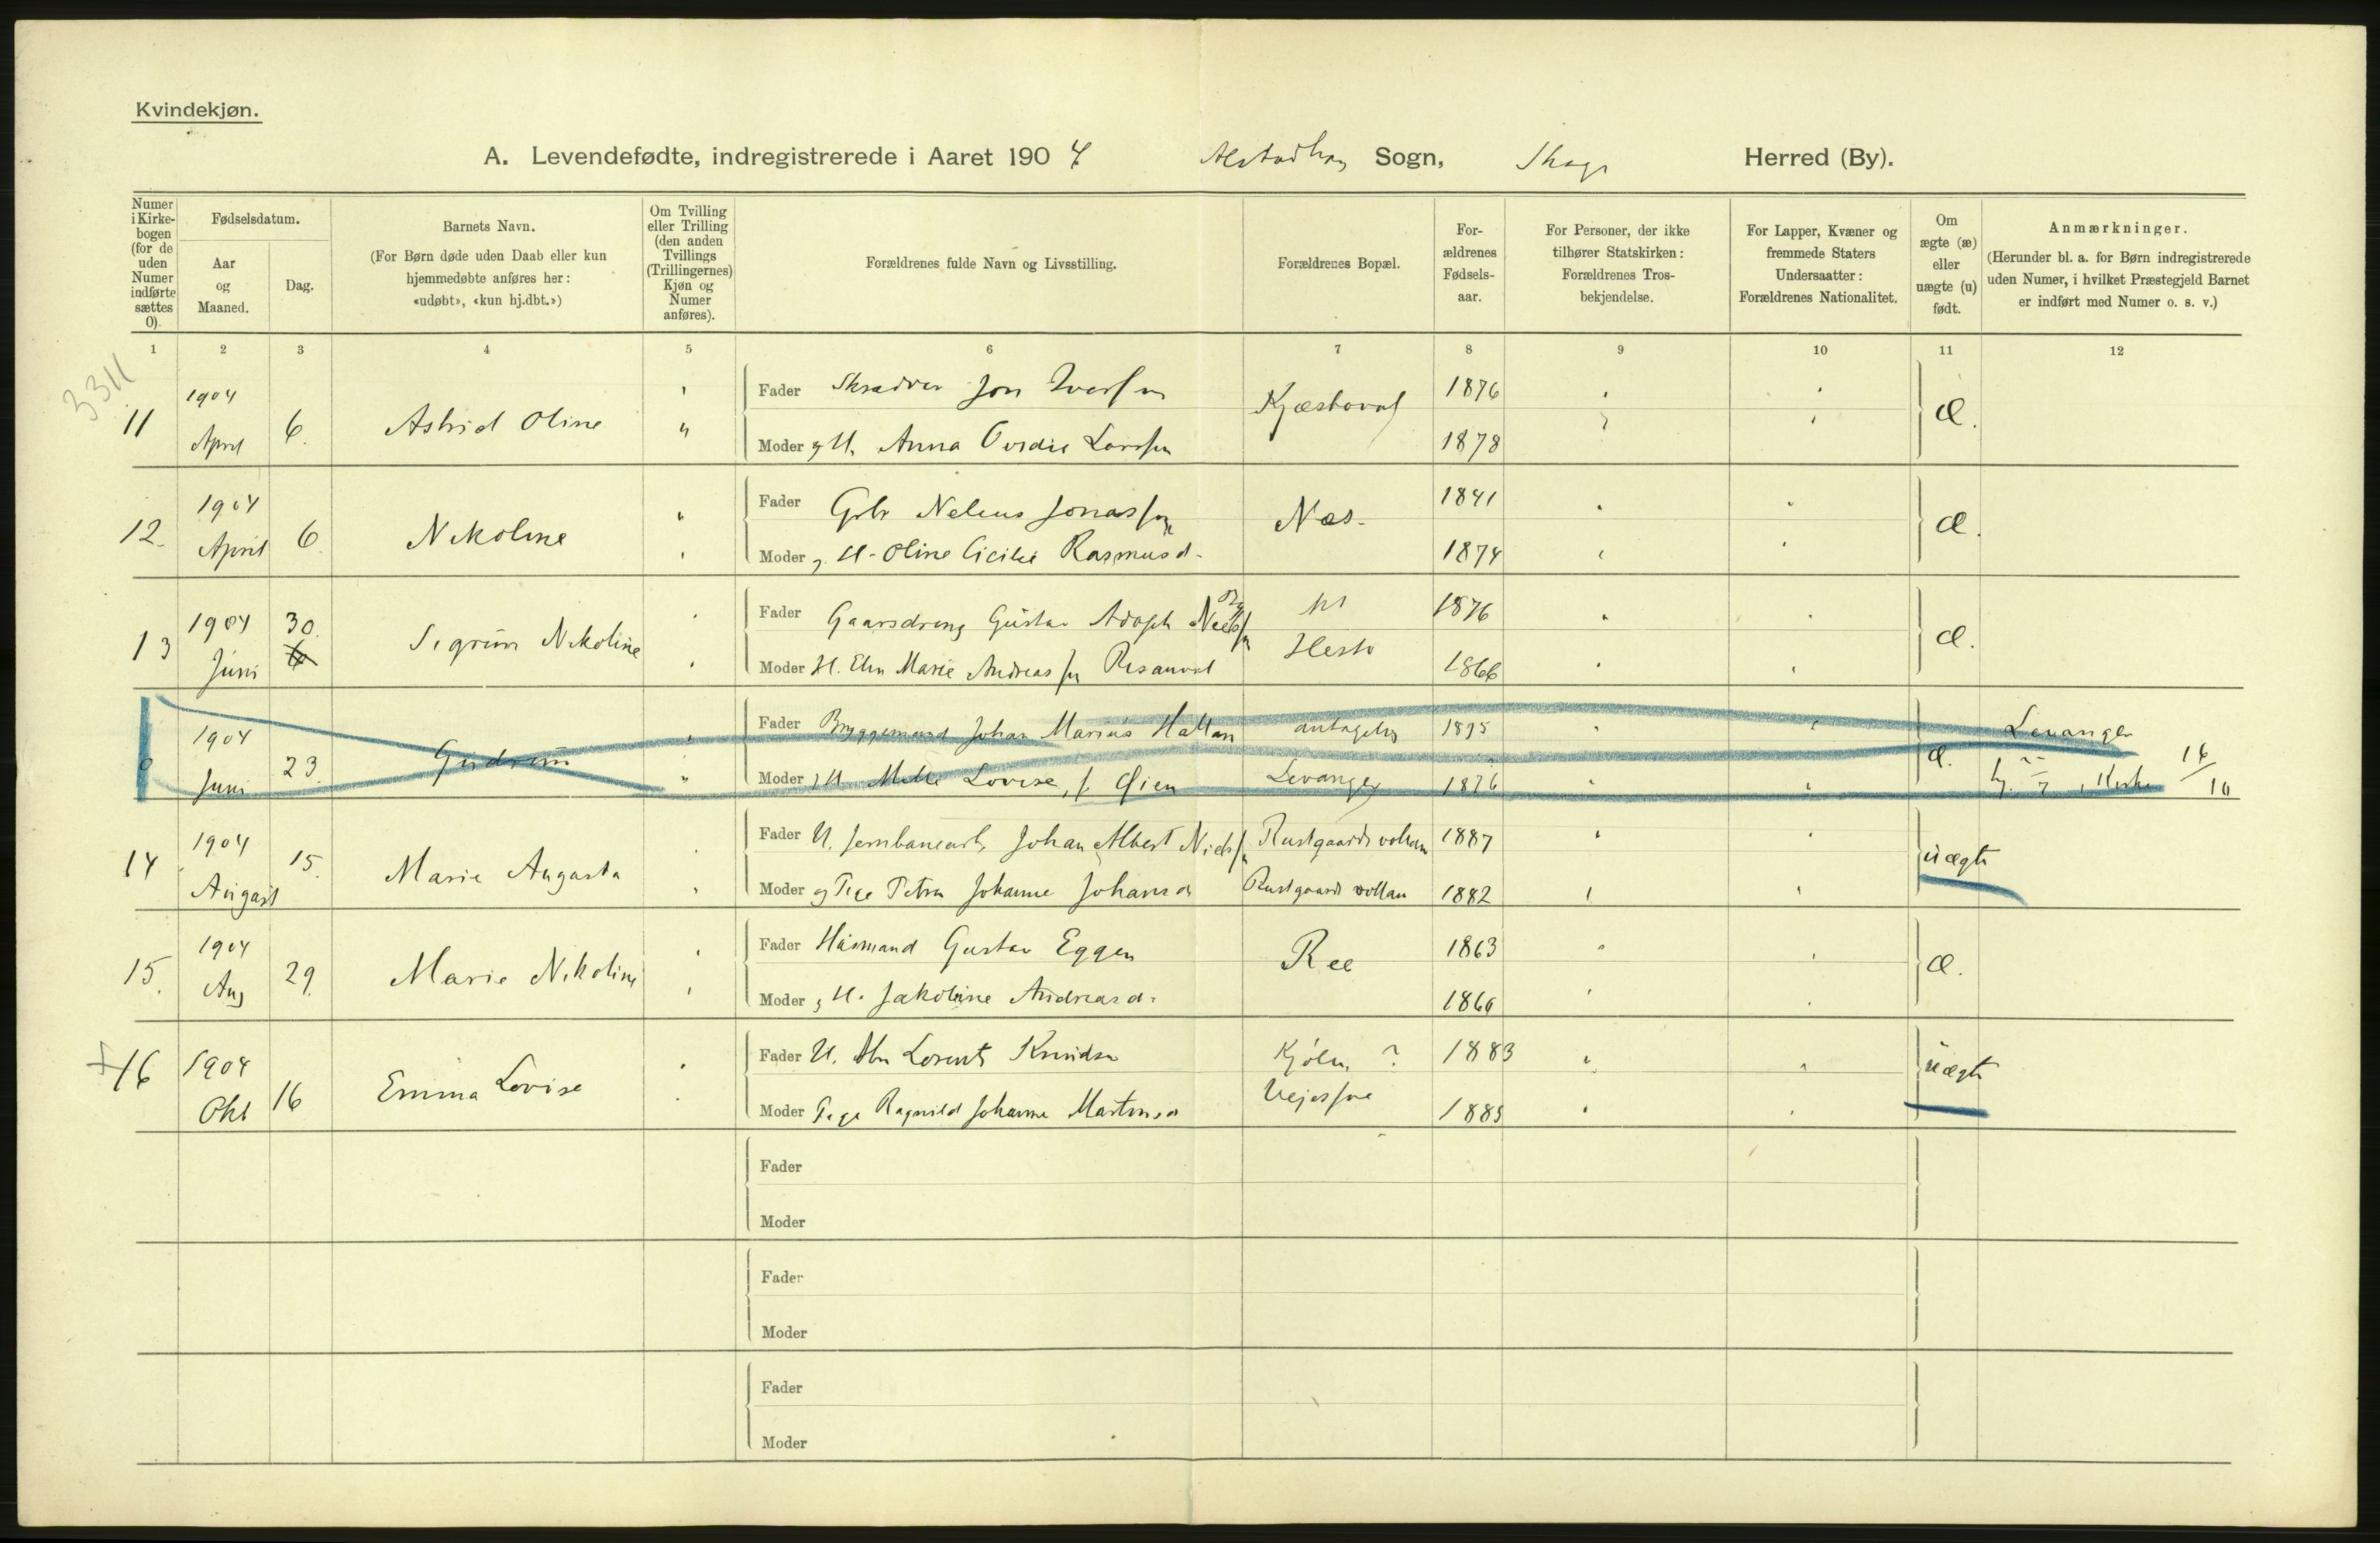 Kvindekjøn.
A. Levendefødte, indregistrerede i Aaret 1904 Alstadhaug Sogn, Skogn Herred (By).
Numer i Kirkebogen (for de uden Numer indførte sættes 0).
Fødselsdatum.
Aar og Maaned.
Dag.
Barnets Navn.
(For Børn døde uden Daab eller kun hjemmedøbte anføres her: «udøbt», «kun hj.dbt.»)
Om Tvilling eller Trilling (den anden Tvillings (Trillingernes) Kjøn og Numer anføres).
Forældrenes fulde Navn og Livsstilling.
Forældrenes Bopæl.
Forældrenes Fødselsaar.
For Personer, der ikke tilhører Statskirken: Forældrenes Trosbekjendelse.
For Lapper, Kvæner og fremmede Staters Undersaatter: Forældrenes Nationalitet.
Om ægte (æ) eller uægte (u) født.
Anmærkninger.
(Herunder bl. a. for Børn indregistrerede uden Numer, i hvilket Præstegjeld Barnet er indført med Numer o. s. v.)
1 2 3 4 5 6 7 8 9 10 11 12
3311
11 1904 April 6. Astrid Oline
Fader Skrædder Jon Iversen 1876
Moder og H. Anna Larsen 1878
æ.
12. 1904 April 6. Nikoline
Fader Grbr Nelius Jonassen Næs. 1841
Moder og H. Oline Cicilie Rasmusd. 1874
æ.
13 1904 Juni 30. 6 Sigrun Nikoline
Fader Gaardsdreng Gustav Adolph 1876
Moder H. Elen Marie Andreassen 1866
æ.
0 1904 Juni 23. Gudrun
Fader Byggemand Johan Marius Hallan antagelig 1875 Levanger
Moder H. Lovise, f. Øien Levanger 1876
æ. Kirke 16/10
14 1904 August 15. Marie Augusta
Fader U. Jernbanearb. Johan Albert Nielsen Rustgaardsvollan 1887
Moder og Pige Petra Johanne Johansd Rustgaardsvollan 1882
uægte
15. 1904 Aug 29. Marie Nikoline
Fader Husmand Gustav Eggen Ree 1863
Moder og H. Jakobine Andreasd.
æ.
16 1904 Okt 16 Emma Lovise
Fader U. Lorents Knudsen ? 1883
Moder Pige Ragnild Johanne Martinsd 1885
uægte
Fader
Moder
Fader
Moder
Fader
Moder